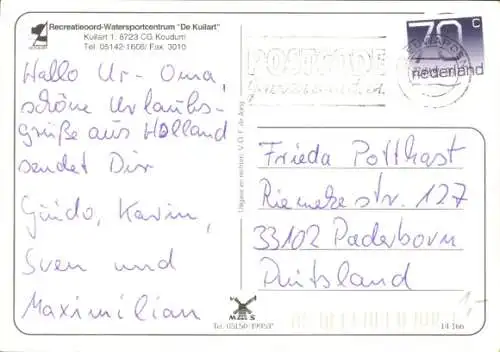 Recreatieoord-Watersportcentrum "De Kuilart"
Kuilart 1, 8723 CG Koudum
Tel. 05142-1606/ Fax. 3010
Hallo Ur-Oma,
schöne Urlaubs-
grüße aus Holland
sendet Dir
Guido, Karin,
Sven und
Maximilian
70 c
nederland
POSTCODE
Frieda Potthast
Riemekestr. 127
33102 Paderborn
Duitsland
1,-
MMS
14 166